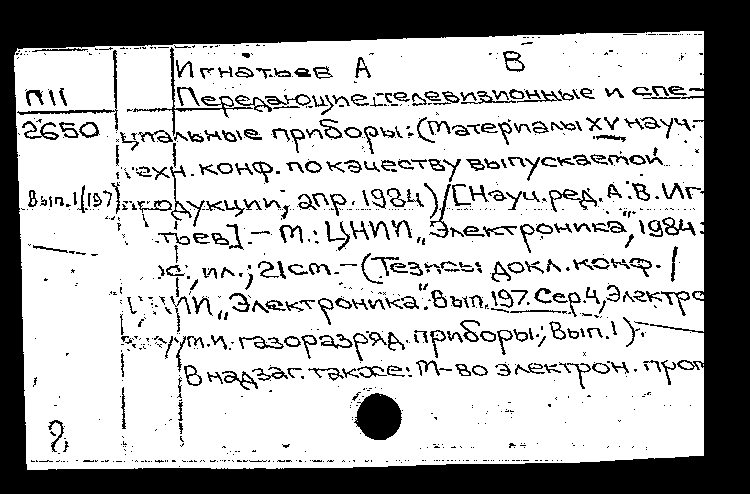 Игнатьев А В
П11
Передающие телевизионные и спе-
2650
циальные приборы: (Материалы XV науч.-
техн. конф. по качеству выпускаемой
Вып.1(197)
продукции, апр. 1984) / [Науч. ред. А.В. Иг-
тьев]. - М.: ЦНИИ „Электроника", 1984.
с., ил.; 21 см. - (Тезисы докл. конф. /
ЦНИИ „Электроника". Вып. 197. Сер. 4, Электро
вакуум. и газоразряд. приборы; Вып. 1).
В надзаг. также: М-во электрон. пром